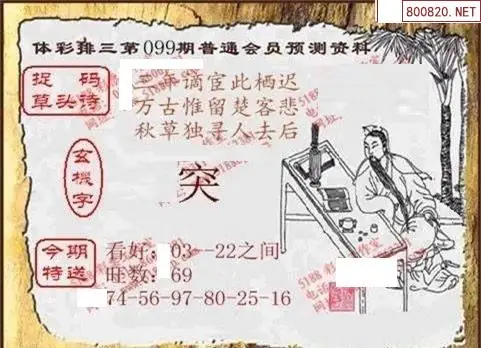 800820.NET
体彩排三第099期普通会员预测资料
捉码
草头诗
年谪宦此栖迟
万古惟留楚客悲
秋草独寻人去后
玄機字
突
今期
特送
看好：03--22之间
旺数：69
74-56-97-80-25-16